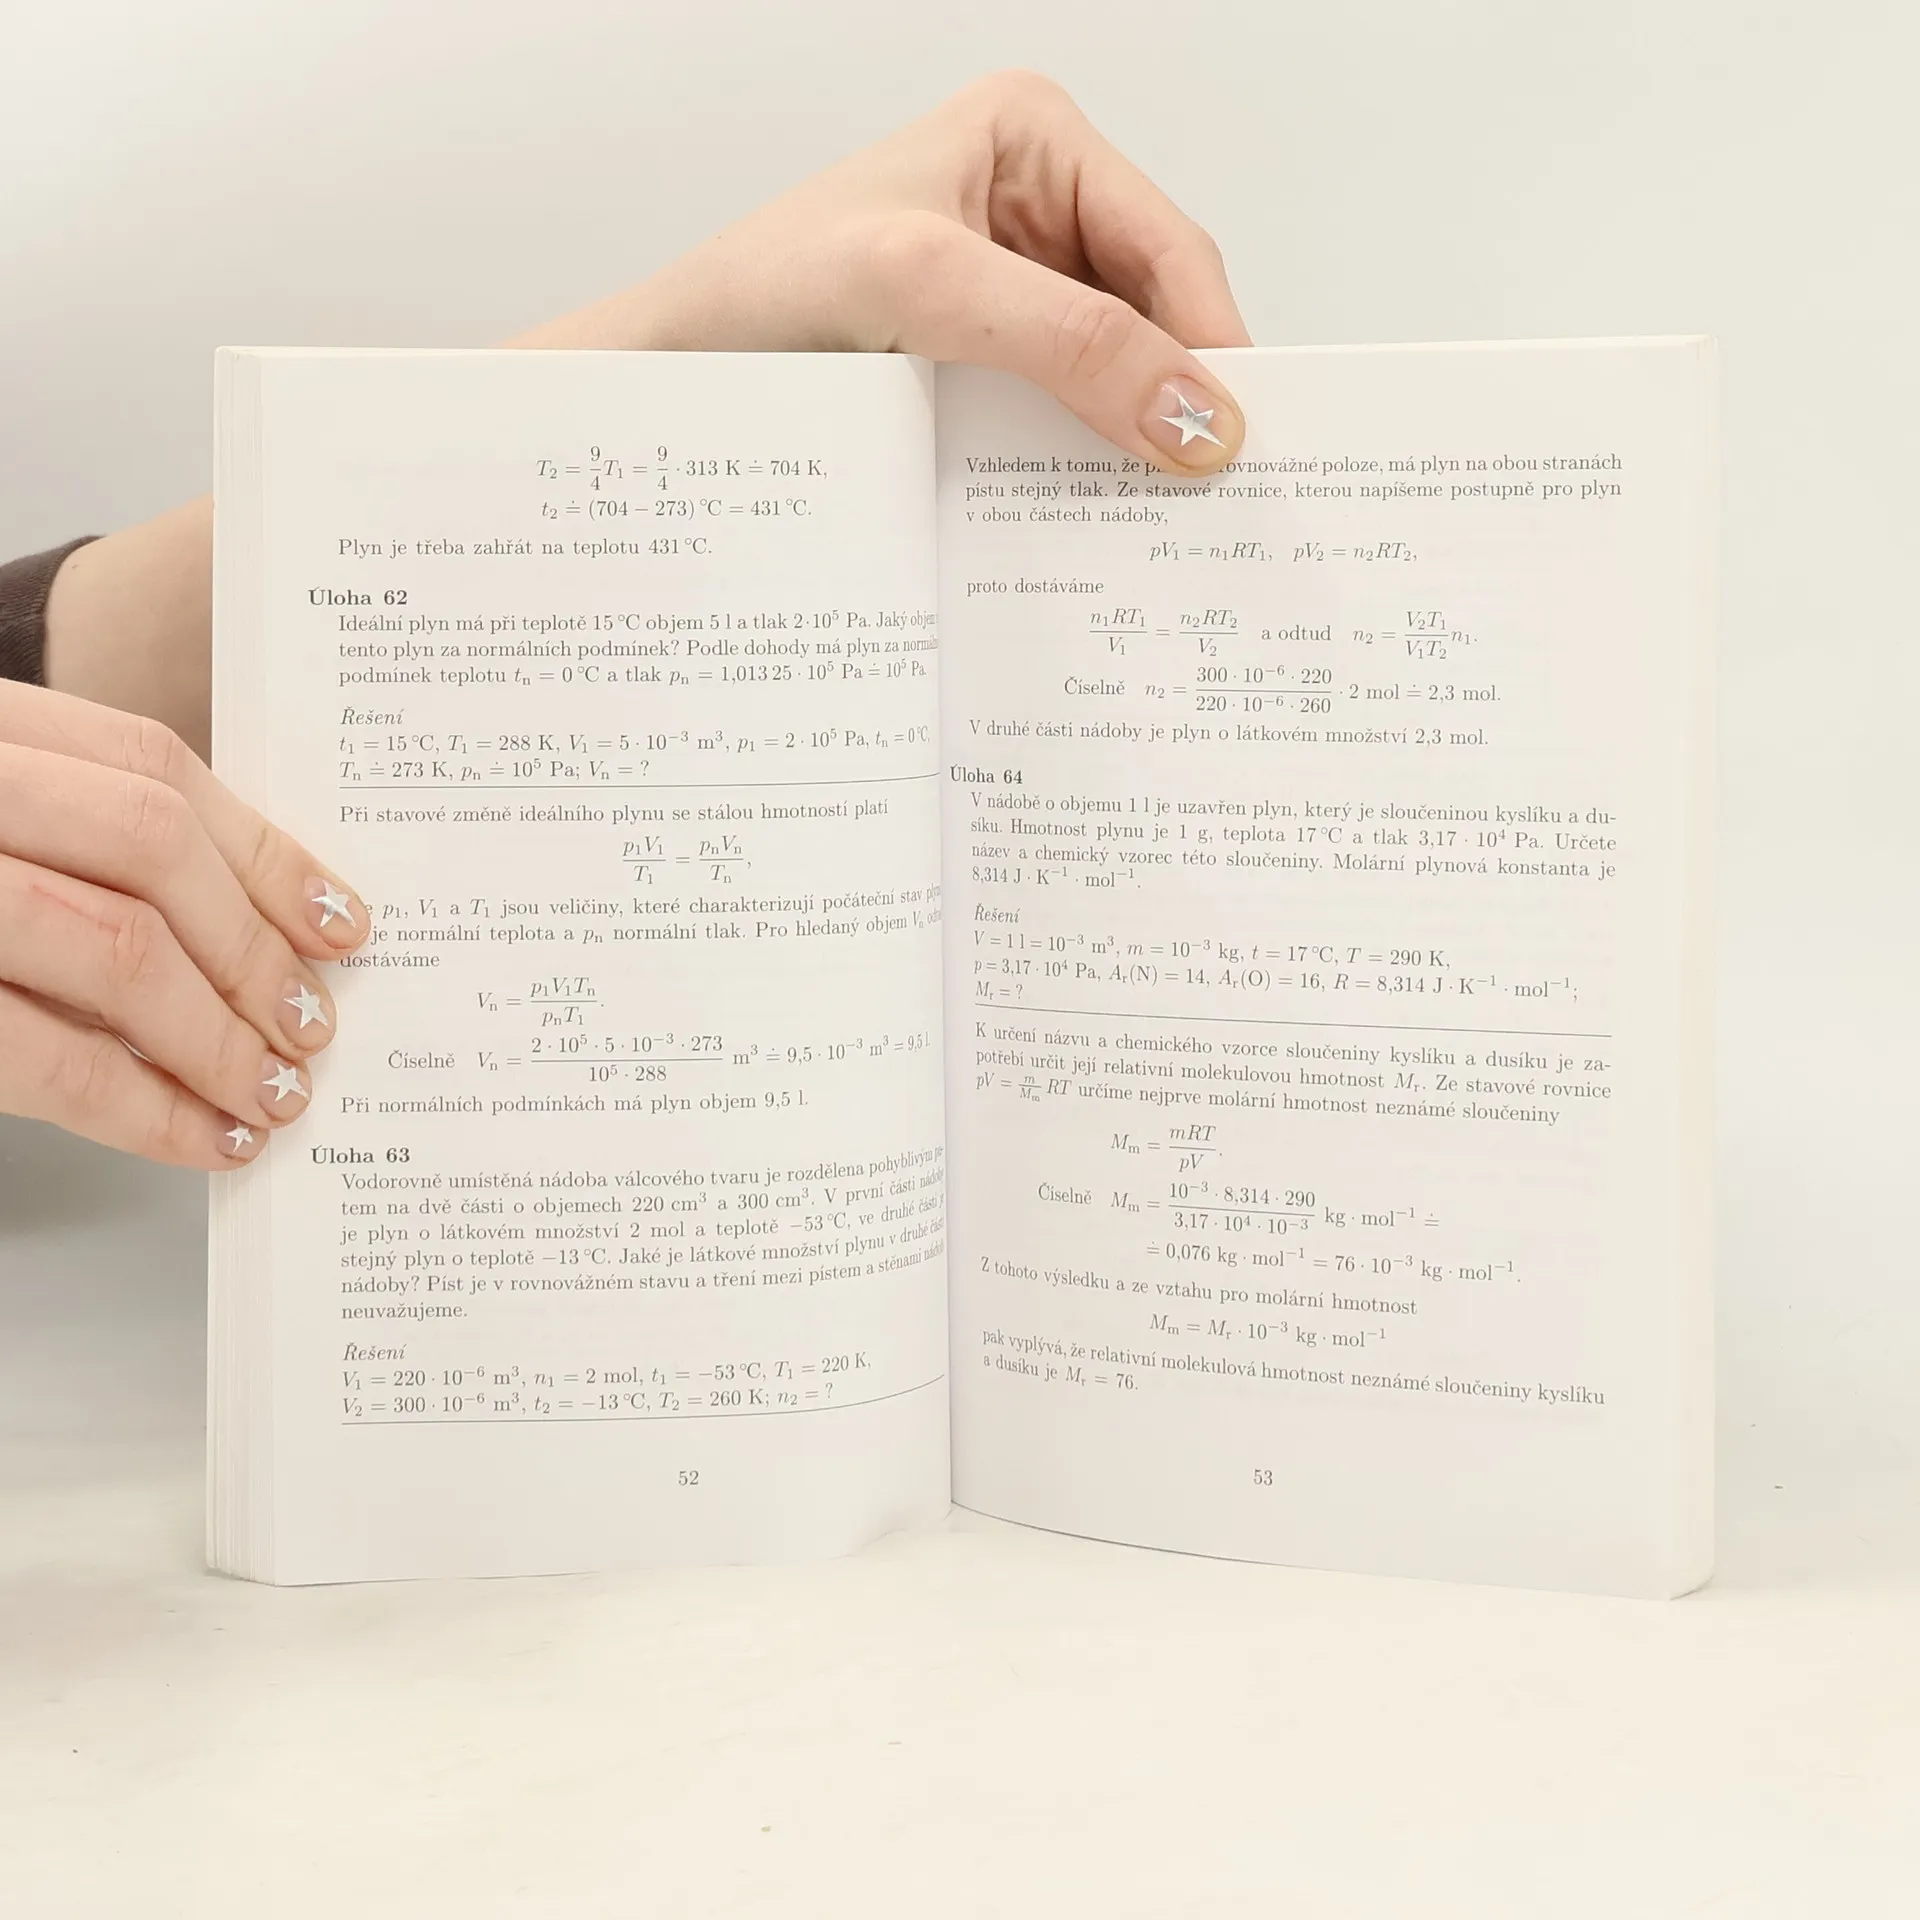 T₂ = 9/4 T₁ = 9/4 · 313 K ≐ 704 K,
t₂ ≐ (704 − 273) °C = 431 °C.
Plyn je třeba zahřát na teplotu 431 °C.
Úloha 62
Ideální plyn má při teplotě 15 °C objem 5 l a tlak 2·10⁵ Pa. Jaký
tento plyn za normálních podmínek? Podle dohody má plyn za
podmínek teplotu tₙ = 0 °C a tlak pₙ = 1,013 25 · 10⁵ Pa ≐ 10⁵ Pa.
Řešení
t₁ = 15 °C, T₁ = 288 K, V₁ = 5 · 10⁻³ m³, p₁ = 2 · 10⁵ Pa, tₙ = 0 °C,
Tₙ ≐ 273 K, pₙ ≐ 10⁵ Pa; Vₙ = ?
Při stavové změně ideálního plynu se stálou hmotností platí
p₁V₁/T₁ = pₙVₙ/Tₙ,
p₁, V₁ a T₁ jsou veličiny, které charakterizují počáteční stav
je normální teplota a pₙ normální tlak. Pro hledaný objem Vₙ
dostáváme
Vₙ = p₁V₁Tₙ/pₙT₁.
Číselně Vₙ = 2 · 10⁵ · 5 · 10⁻³ · 273/10⁵ · 288 m³ ≐ 9,5 · 10⁻³ m³ = 9,5 l.
Při normálních podmínkách má plyn objem 9,5 l.
Úloha 63
Vodorovně umístěná nádoba válcového tvaru je rozdělena pohyblivým
tem na dvě části o objemech 220 cm³ a 300 cm³. V první části
je plyn o látkovém množství 2 mol a teplotě −53 °C, ve druhé části
stejný plyn o teplotě −13 °C. Jaké je látkové množství plynu v druhé
nádoby? Píst je v rovnovážném stavu a tření mezi pístem a stěnami
neuvažujeme.
Řešení
V₁ = 220 · 10⁻⁶ m³, n₁ = 2 mol, t₁ = −53 °C, T₁ = 220 K,
V₂ = 300 · 10⁻⁶ m³, t₂ = −13 °C, T₂ = 260 K; n₂ = ?
52
Vzhledem k tomu, že rovnovážné poloze, má plyn na obou stranách
pístu stejný tlak. Ze stavové rovnice, kterou napíšeme postupně pro plyn
v obou částech nádoby,
pV₁ = n₁RT₁, pV₂ = n₂RT₂,
proto dostáváme
n₁RT₁/V₁ = n₂RT₂/V₂ a odtud n₂ = V₂T₁/V₁T₂ n₁.
Číselně n₂ = 300 · 10⁻⁶ · 220/220 · 10⁻⁶ · 260 · 2 mol ≐ 2,3 mol.
V druhé části nádoby je plyn o látkovém množství 2,3 mol.
Úloha 64
V nádobě o objemu 1 l je uzavřen plyn, který je sloučeninou kyslíku a du-
síku. Hmotnost plynu je 1 g, teplota 17 °C a tlak 3,17 · 10⁴ Pa. Určete
název a chemický vzorec této sloučeniny. Molární plynová konstanta je
8,314 J · K⁻¹ · mol⁻¹.
Řešení
V = 1 l = 10⁻³ m³, m = 10⁻³ kg, t = 17 °C, T = 290 K,
p = 3,17 · 10⁴ Pa, Aᵣ(N) = 14, Aᵣ(O) = 16, R = 8,314 J · K⁻¹ · mol⁻¹;
Mᵣ = ?
K určení názvu a chemického vzorce sloučeniny kyslíku a dusíku je za-
potřebí určit její relativní molekulovou hmotnost Mᵣ. Ze stavové rovnice
pV = m/Mₘ RT určíme nejprve molární hmotnost neznámé sloučeniny
Mₘ = mRT/pV.
Číselně Mₘ = 10⁻³ · 8,314 · 290/3,17 · 10⁴ · 10⁻³ kg · mol⁻¹ ≐
≐ 0,076 kg · mol⁻¹ = 76 · 10⁻³ kg · mol⁻¹.
Z tohoto výsledku a ze vztahu pro molární hmotnost
Mₘ = Mᵣ · 10⁻³ kg · mol⁻¹
pak vyplývá, že relativní molekulová hmotnost neznámé sloučeniny kyslíku
a dusíku je Mᵣ = 76.
53